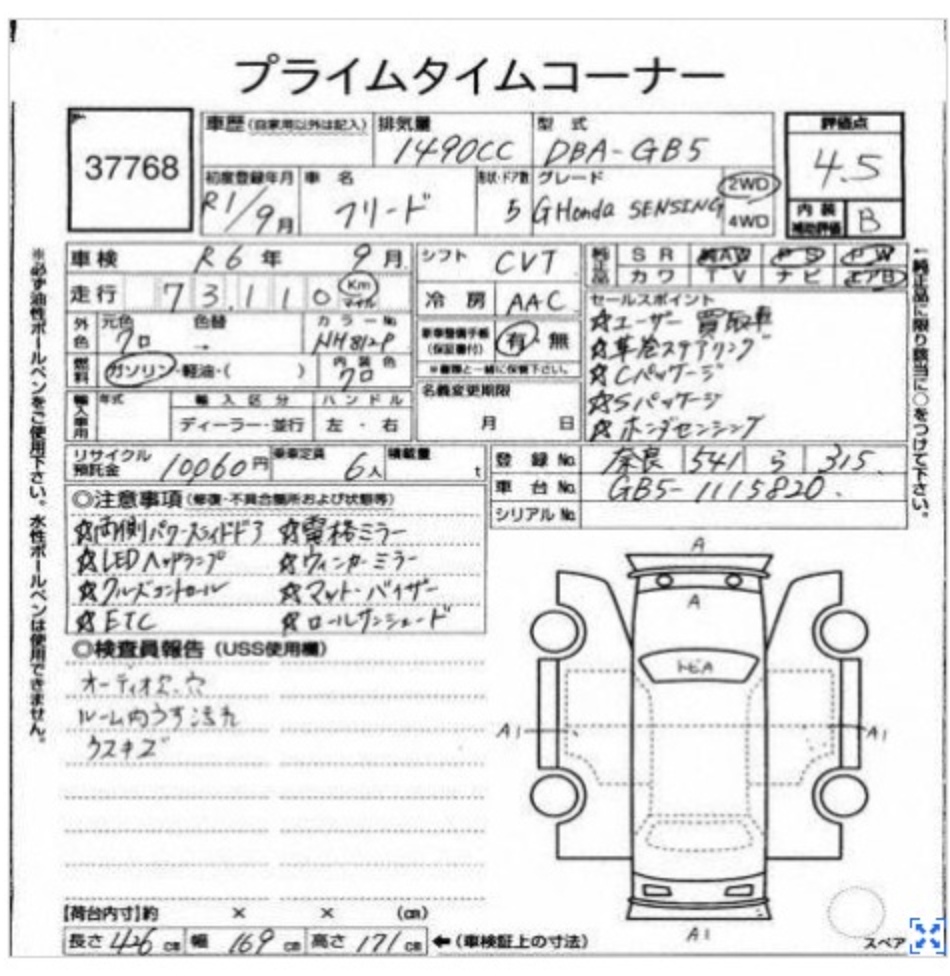 プライムタイムコーナー
37768
車歴 (自家用以外は記入) 排気量 型式 評価点
1490CC DBA-GB5 4.5
初度登録年月 車名 形状・ドア数 グレード 2WD
R1/9月 フリード 5 G Honda SENSING 4WD
内装補助評価 B
車検 R6年 9月 シフト CVT 純正品 SR 純AW PS PW
カワ TV ナビ エアB
走行 73,110 Km マイル 冷房 AAC
外色 元色 クロ 色替 → カラーNo. NH812P
燃料 ガソリン・軽油・( ) 内装色 クロ
新車整備手帳 (保証書付) 有 無
※書類と一緒に保管下さい。
名義変更期限
月 日
輸入車用 年式 輸入区分 ハンドル
ディーラー・並行 左・右
セールスポイント
☆ユーザー買取車
☆革巻ステアリング
☆Cパッケージ
☆Sパッケージ
☆ホンダセンシング
リサイクル預託金 10060円 乗車定員 6人 積載量 t
登録No. 奈良 541 ら 315
車台No. GB5-1115820
シリアルNo.
◎注意事項 (修復・不具合箇所および状態等)
☆両側パワースライドドア ☆電格ミラー
☆LEDヘッドランプ ☆ウィンカーミラー
☆クルーズコントロール ☆マット・バイザー
☆ETC ☆ロールサンシェード
◎検査員報告 (USS使用欄)
オーディオレス、穴
ルーム内うす汚れ
ウスキズ
A
A
トビA
A1
A1
A1
【荷台内寸】約 × × (cm)
長さ 426 cm 幅 169 cm 高さ 171 cm ←(車検証上の寸法)
スペア
※必ず油性ボールペンをご使用下さい。水性ボールペンは使用できません。
↑純正品に限り該当に○をつけて下さい。